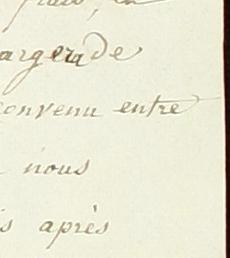 argera de
convenu entre
nous
s après